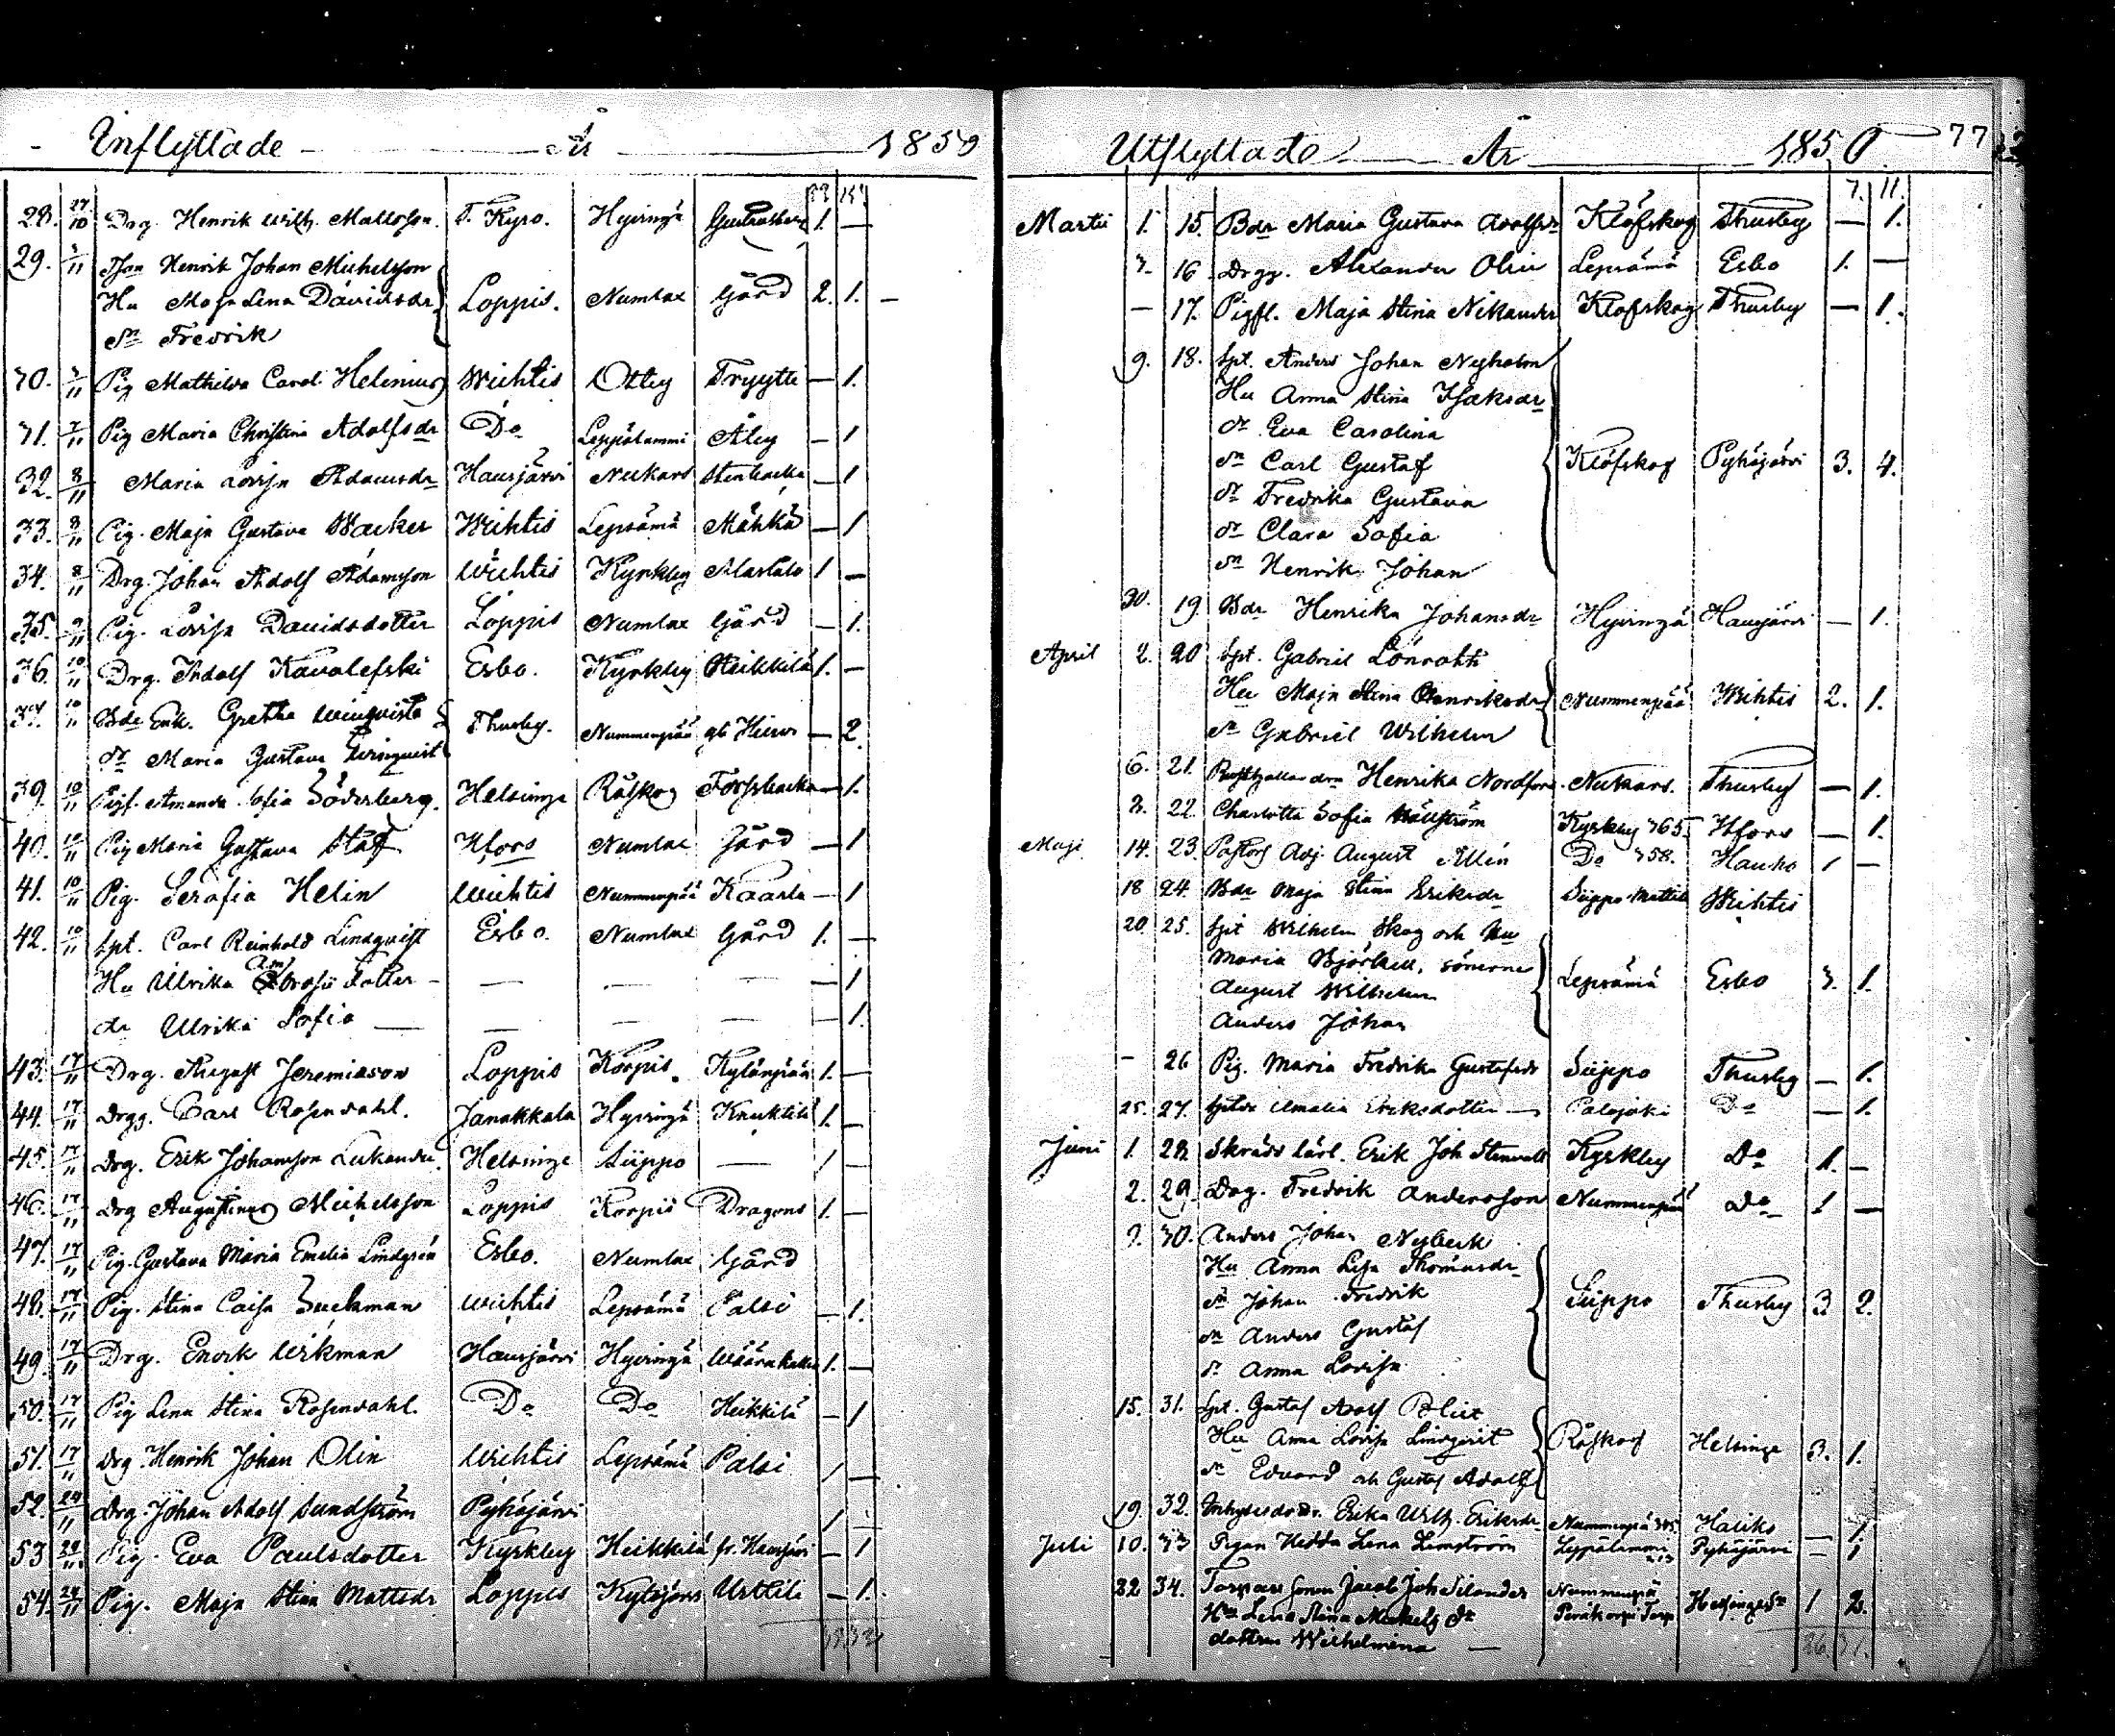 Inflyttade År 1859
28. 27/10 Drg. Henrik Wilh. Mattsson. T. Kyro. Hyvingä 1. —
29. Henrik Johan Michelsson
Hu Maja Lena Davidsdr Loppis. Numlax Gård 2. 1. —
sn Fredrik
30. Pig Mathilda Carol. Helenius Wichtis Ottby Tryytti — 1.
31. Pig Maria Christina Adolfsdr Do Leppälammi Åby — 1
32. 8/11 Maria Lovisa Adamsdr Hausjärvi Nukars Stenbacka — 1
33. 8/11 Pig. Maja Gustava Wacker Wichtis Lepsämä Mähkä — 1
34. 8/11 Drg. Johan Adolf Adamsson Wichtis Kyrkby 1 —
35. 9/11 Pig. Lovisa Davidsdotter Loppis Numlax Gård — 1.
36. 10/11 Drg. Adolf Kavalefski Esbo. Kyrkby Heikkilä 1. —
37. 10/11 Bde Enk. Gretha Winqvist Thusby. Nummenpää — 2.
dr Maria Gustava Winqvist
39. 10/11 Pigf. Amanda Sofia Söderberg. Helsinge Råskog Forssbacka — 1.
40. 10/11 Pig Maria Gustava Staf Hfors Numlax Gård — 1
41. 10/11 Pig. Serafia Helin Wichtis Nummenpää Kaarla — 1
42. 10/11 Spt. Carl Reinhold Lindqvist Esbo. Numlax Gård 1. —
Hu Ulrika dotter — — — — — 1
dr Ulrika Sofia — — — — — 1.
43. 17/11 Drg. August Jeremiason Loppis Korpis. Kylänpää 1. —
44. 17/11 Drgg. Carl Rosendahl. Janakkala Hyvingä Knuttila 1. —
45. 17/11 Drg. Erik Johansson Lukander. Helsinge Siippo — 1 —
46. 17/11 Drg Augustinus Michelsson Loppis Korpis Dragons 1. —
47. 17/11 Pig. Gustava Maria Emelia Lindgrén Esbo. Numlax Gård
48. 17/11 Pig. Stina Caisa Suckman Wichtis Lepsämä Palsi — 1.
49. 17/11 Drg. Enock Wikman Hausjärvi Hyvingä 1. —
50. 17/11 Pig Lena Stina Rosendahl. Do Do Heikkilä — 1
51. 17/11 Drg. Henrik Johan Olin Wichtis Lepsämä Palsi 1 —
52. 24/11 Drg. Johan Adolf Sundström Pyhäjärvi 1 —
53 24/11 Pig. Eva Paulsdotter Kyrkby Heikkilä fr. Hausjärvi — 1
54. 24/11 Pig. Maja Stina Mattsdr Loppis Kytöjärvi Uttila — 1.
Utflyttade År 1850 77
7. 11.
Martii 1. 15. Bdr Maria Gustava Adolfsdr Klöfskog Thusby — 1.
3. 16. Drgg. Alexander Olin Lepsämä Esbo 1. —
— 17. Pigfl. Maja Stina Nikander Klöfskog Thusby — 1.
9. 18. Spt. Anders Johan Nyholm
Hu Anna Stina Isaksdr
dr Eva Carolina
sn Carl Gustaf Klöfskog Pyhäjärvi 3. 4.
dr Fredrika Gustava
dr Clara Sofia
sn Henrik Johan
30. 19. Bdr Henrika Johansdr Hyvingä Hausjärvi — 1.
April 2. 20 Spt. Gabriel Lönroth
Hu Maja Stina Henriksdr Nummenpää Wichtis 2. 1.
sn Gabriel Wilhelm
6. 21. Rusthållar dra Henrika Nordfors. Nukars. Thusby — 1.
8. 22. Charlotta Sofia Kyrkby 365. Hfors — 1.
Maji 14. 23. Pastors Adj. August Allén Do 358. Hauho 1 —
18 24. Bdr Maja Stina Eriksdr Siippo Mattila Wichtis
20. 25. Spt Wilhelm Skog och Hu
Maria Björkell, sönerne Lepsämä Esbo 3. 1.
August Wilhelm
Anders Johan
— 26 Pig. Maria Fredrika Gustafsdr Siippo Thusby — 1.
25. 27. Amalia Eriksdotter — Palojoki Do — 1.
Juni 1. 28. Skrädd lärl. Erik Joh Stenvall Kyrkby Do 1. —
2. 29. Drg. Fredrik Andersson Nummenpää Do 1 —
9. 30. Anders Johan Nyberk
Hu Anna Lisa Thomasdr
sn Johan Fredrik Siippo Thusby 3. 2.
sn Anders Gustaf
dr Anna Lovisa
15. 31. Spt. Gustaf Adolf
Hu Anna Lovisa Lindqvist Råskog Helsinge 3. 1.
sn Edvard och Gustaf Adolf
19. 32. Erika Wilh. Eriksdr Nummenpää Haliko — 1.
Juli 10. 33 Pigan Hedda Lena Lemström Leppälammi Pyhäjärvi — 1
22 34. Torpare sonen Jacob Joh Silander Nummenpää
Hu Lena Stina Mickels dr Torp Helsinge Sn 1 2.
dottren Wilhelmina —
26 31.